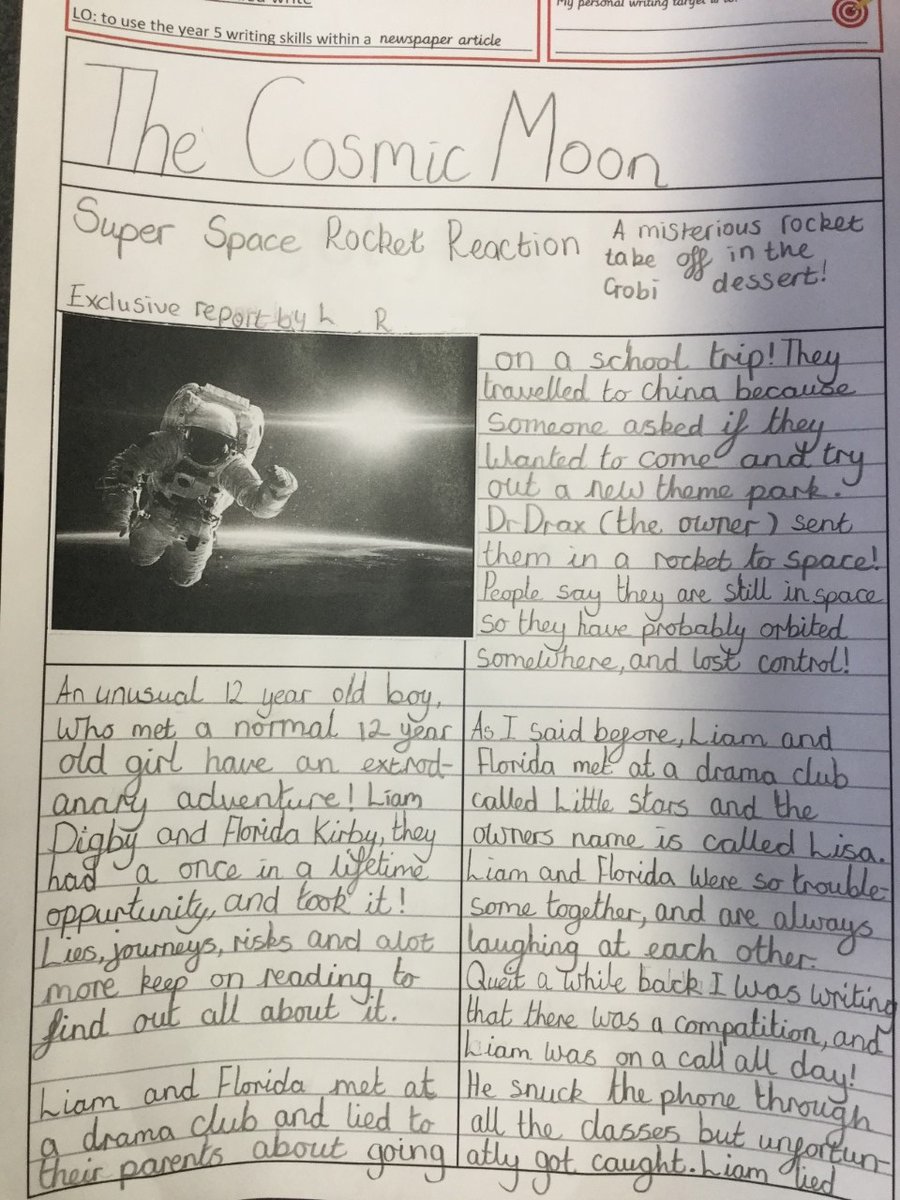 LO: to use the year 5 writing skills within a newspaper article
My personal writing target is to:
The Cosmic Moon
Super Space Rocket Reaction
A misterious rocket
take off in the
Gobi dessert!
Exclusive report by L R
An unusual 12 year old boy,
Who met a normal 12 year
old girl have an extrod-
anary adventure! Liam
Digby and Florida Kirby, they
had a once in a lifetime
oppurtunity, and took it!
Lies, journeys, risks and alot
more keep on reading to
find out all about it.
Liam and Florida met at
a drama club and lied to
their parents about going
on a school trip! They
travelled to China because
Someone asked if they
Wanted to come and try
out a new theme park.
Dr Drax (the owner) sent
them in a rocket to space!
People say they are still in space
so they have probably orbited
somewhere, and lost control!
As I said before, Liam and
Florida met at a drama club
called Little stars and the
owners name is called Lisa.
Liam and Florida were so trouble-
some together, and are always
laughing at each other.
Queit a while back I was writing
that there was a compatition, and
Liam was on a call all day!
He snuck the phone through
all the classes but unfortun-
atly got caught. Liam lied